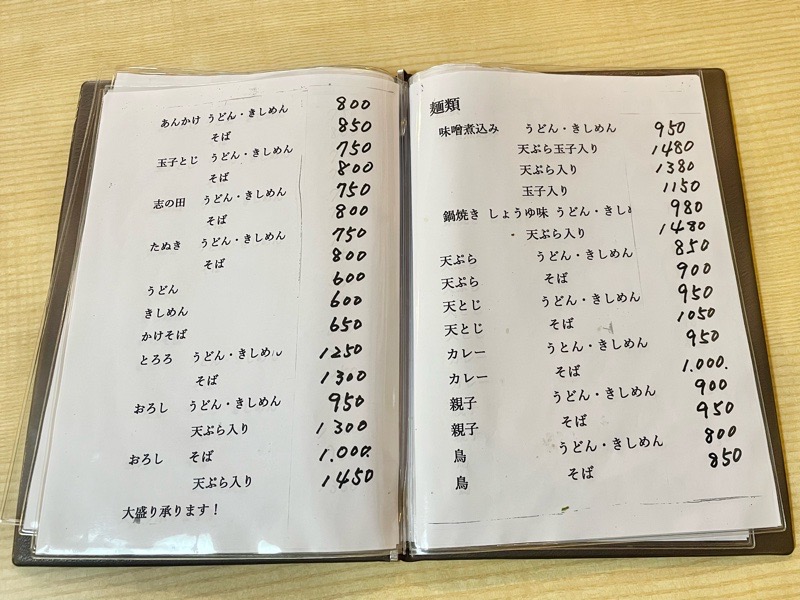 あんかけ うどん・きしめん 800
そば 850
玉子とじ うどん・きしめん 750
そば 800
志の田 うどん・きしめん 750
そば 800
たぬき うどん・きしめん 750
そば 800
うどん 600
きしめん 600
かけそば 650
とろろ うどん・きしめん 1250
そば 1300
おろし うどん・きしめん 950
天ぷら入り 1300
おろし そば 1.000.
天ぷら入り 1450
大盛り承ります!
麺類
味噌煮込み うどん・きしめん 950
天ぷら玉子入り 1480
天ぷら入り 1380
玉子入り 1150
鍋焼き しょうゆ味 うどん・きし 980
天ぷら入り 1480
天ぷら うどん・きしめん 850
天ぷら そば 900
天とじ うどん・きしめん 950
天とじ そば 1050
カレー うどん・きしめん 950
カレー そば 1.000.
親子 うどん・きしめん 900
親子 そば 950
鳥 うどん・きしめん 800
鳥 そば 850